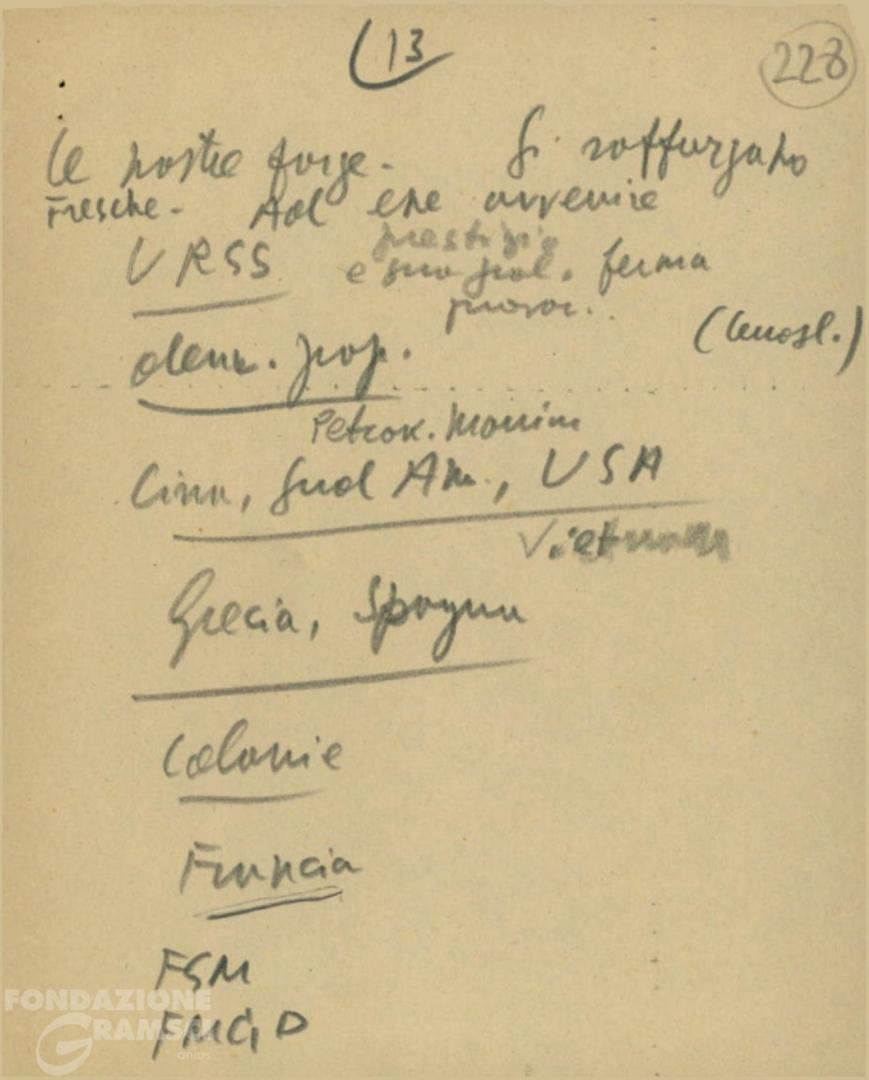 13
228
Le nostre forze. Si rafforzano
Fresche. Ad che avvenire
URSS
prestigio
e sua pol. ferma
provoc.
dem. pop.
(Cecosl.)
Petrok. Monim
Cina, Sud Am., USA
Vietnam
Grecia, Spagna
Colonie
Francia
FSM
FMGD
FONDAZIONE
GRAMSCI
onlus